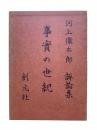 河上徹太郎 評論集
事實の世紀
創元社